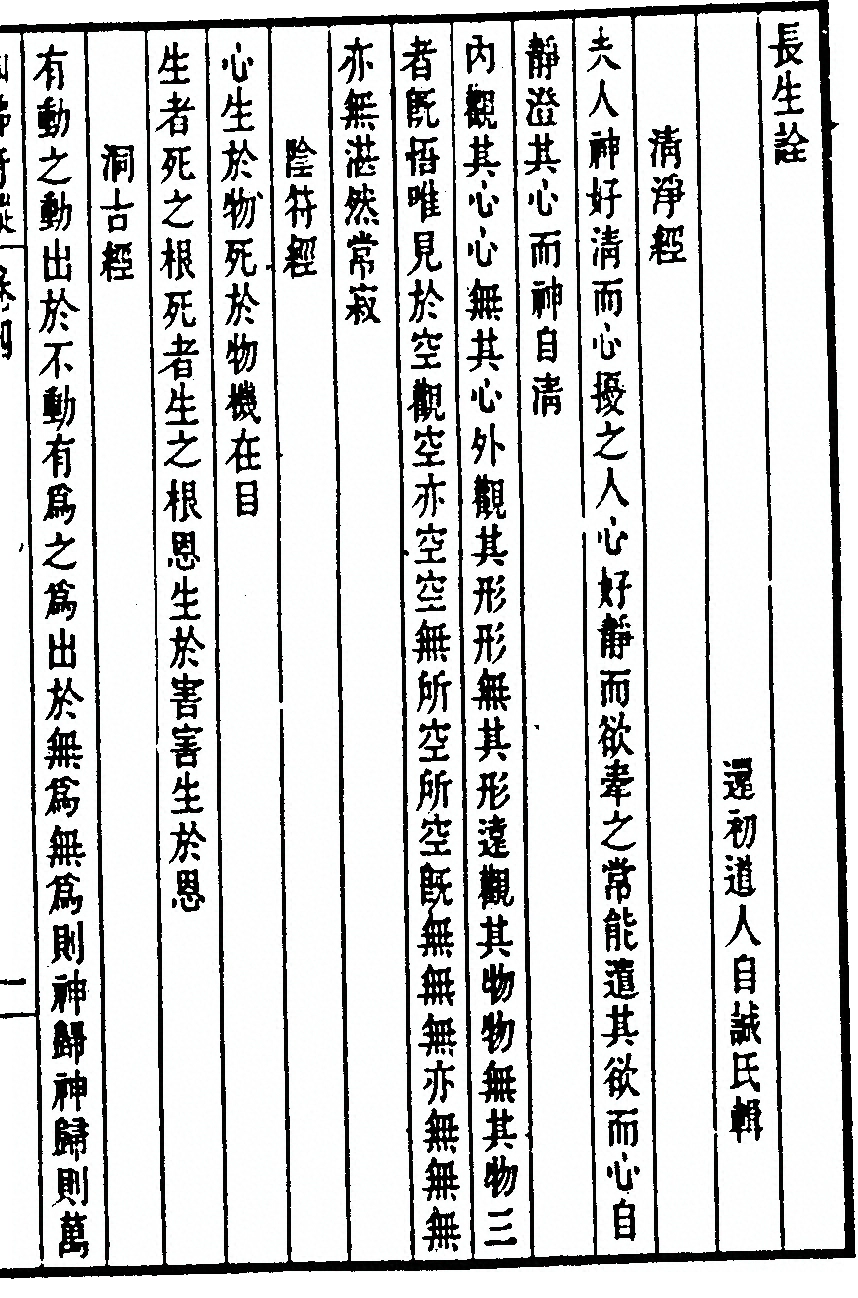 長生詮
還初道人自誠氏輯
清淨經
夫人神好清而心擾之人心好靜而欲牽之常能遣其欲而心自
靜澄其心而神自清
內觀其心心無其心外觀其形形無其形遠觀其物物無其物三
者既悟唯見於空觀空亦空空無所空所空既無無無亦無無無
亦無湛然常寂
陰符經
心生於物死於物機在目
生者死之根死者生之根恩生於害害生於恩
洞古經
有動之動出於不動有爲之爲出於無爲無爲則神歸神歸則萬
卷四
一